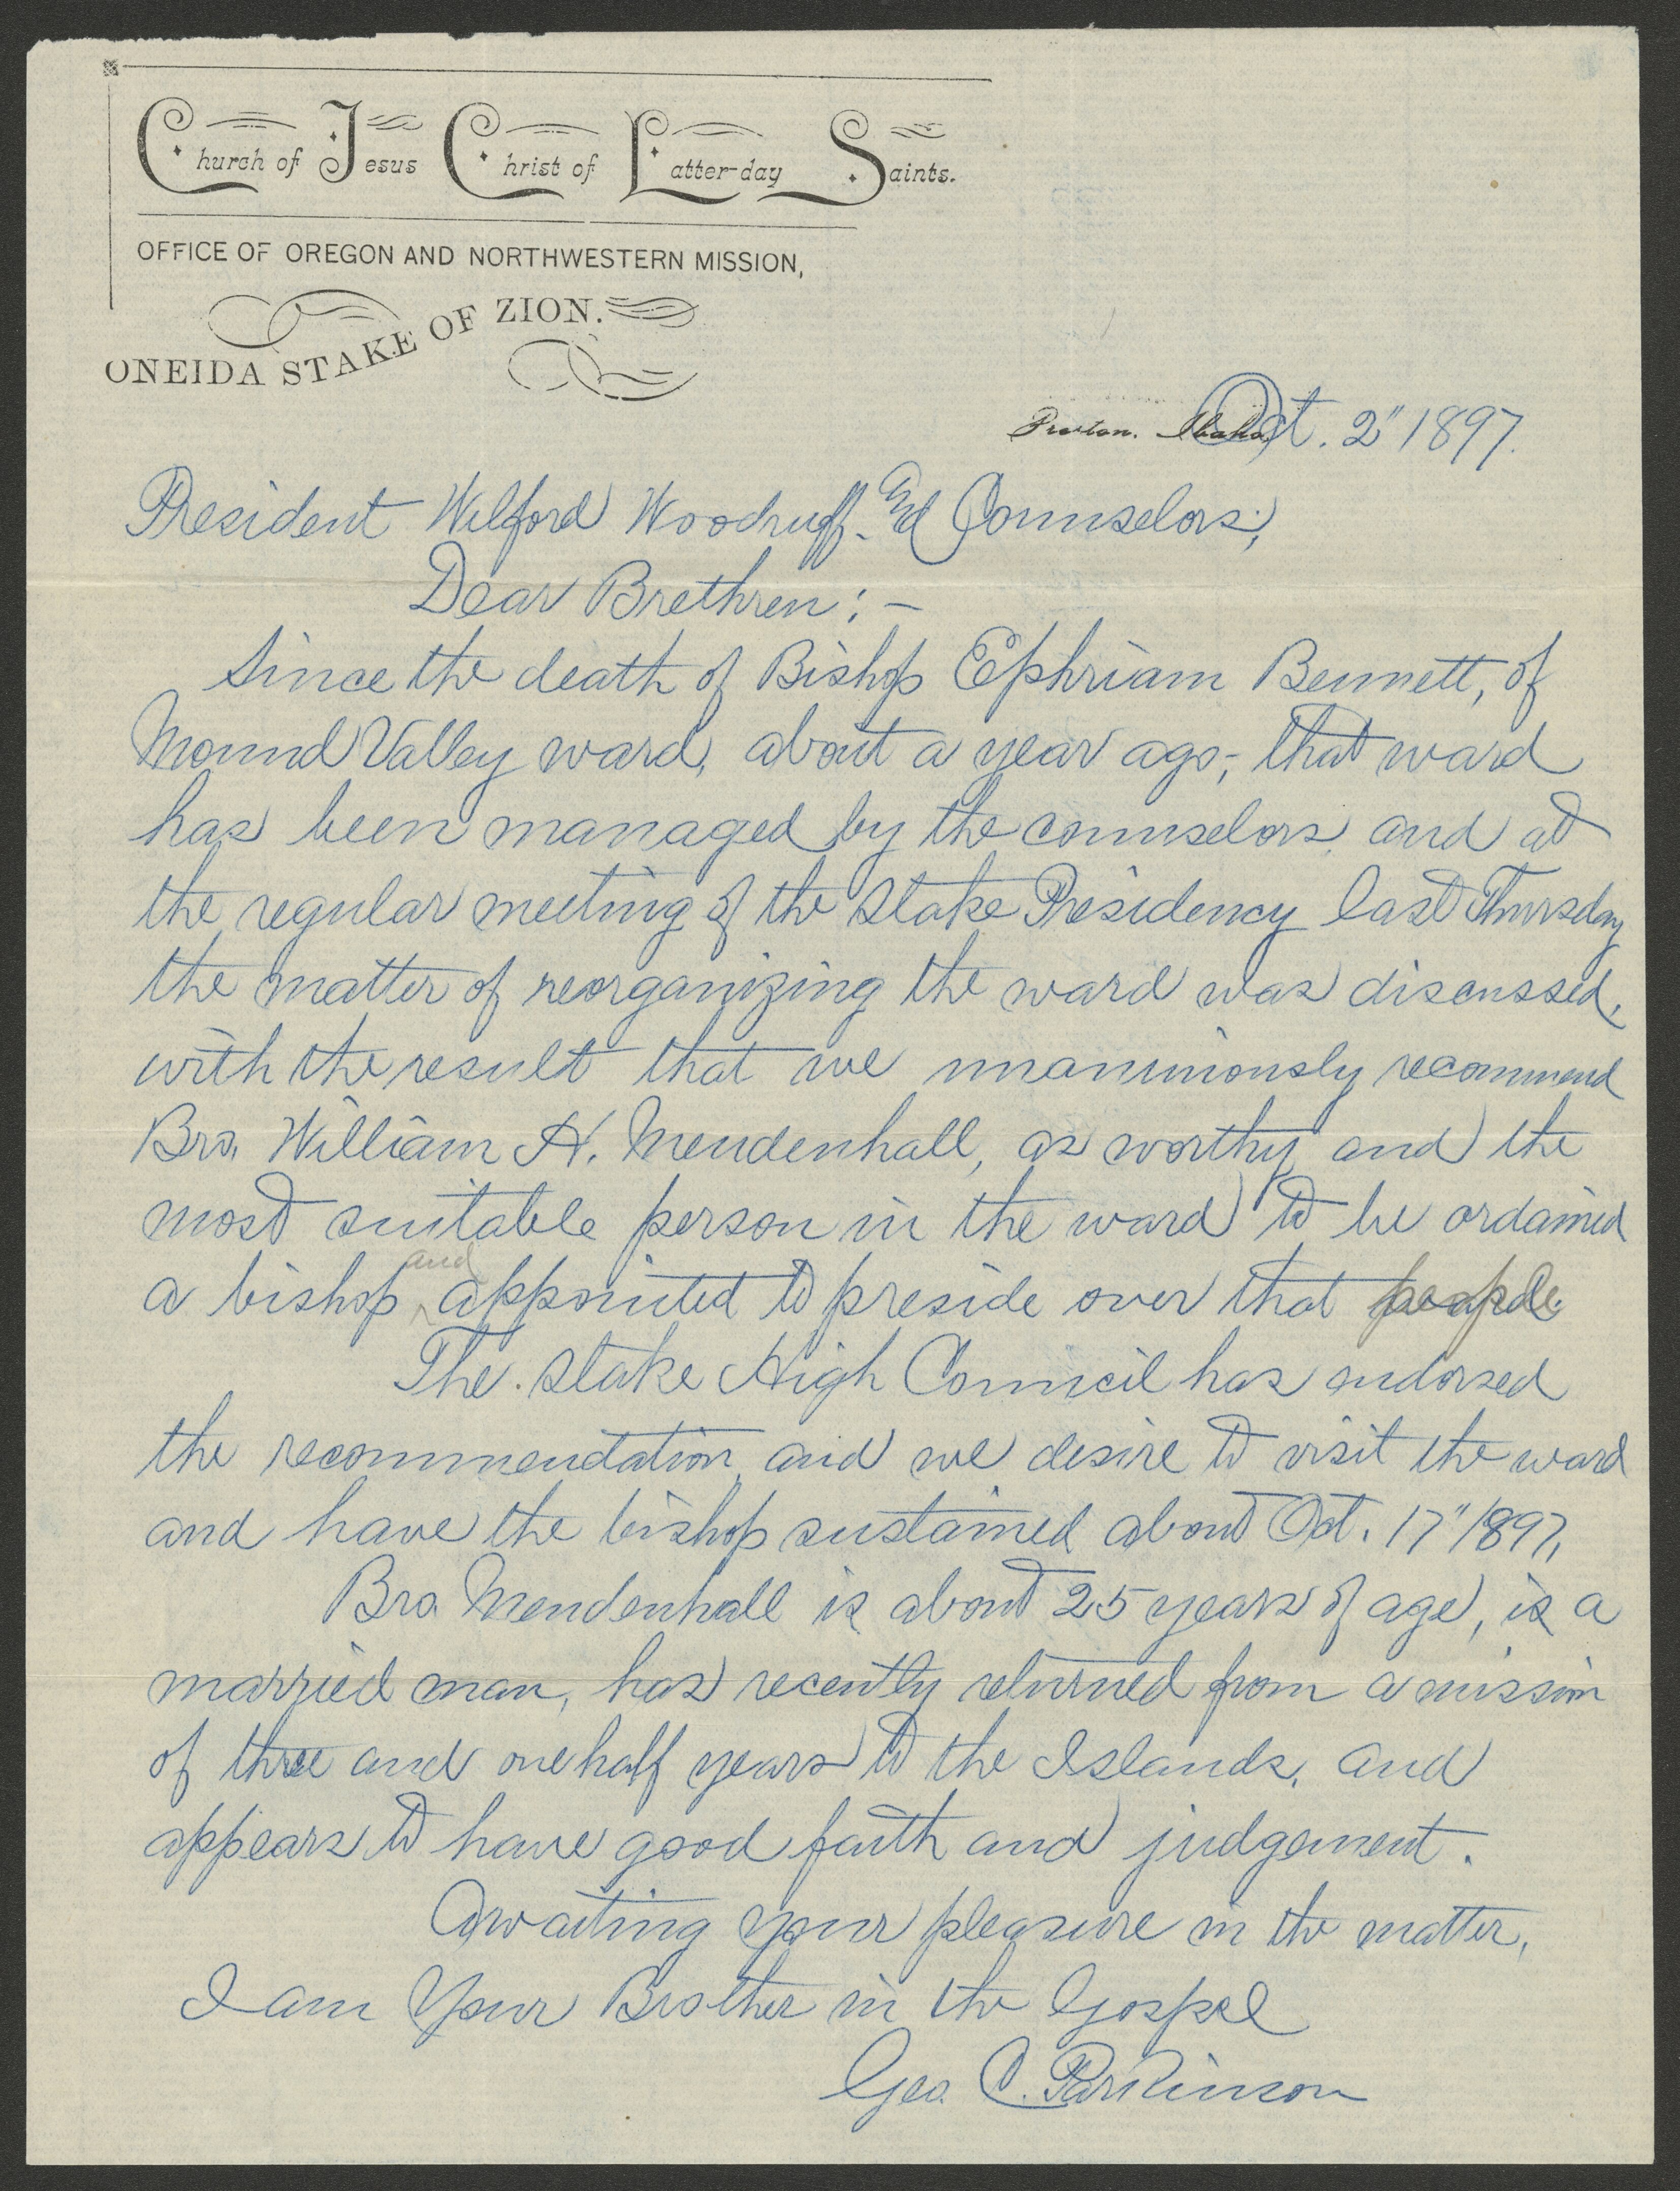 Church of Jesus Christ of Latter-day Saints.
OFFICE OF OREGON AND NORTHWESTERN MISSION,
ONEIDA STAKE OF ZION.
Preston, Idaho, Oct. 2" 1897.
President Wilford Woodruff and Counselors;
Dear Brethren: –
Since the death of Bishop Ephriam Bennett, of
Mound Valley ward, about a year ago, that ward
has been managed by the counselors and at
the regular meeting of the Stake Presidency last Thursday
the matter of reorganizing the ward was discussed,
with the result that we unanimously recommend
Bro. William H. Mendenhall, as worthy and the
most suitable person in the ward to be ordained
a bishop and appointed to preside over that people
The Stake High Council has endorsed
the recommendation and we desire to visit the ward
and have the bishop sustained about Oct. 17" 1897,
Bro. Mendenhall is about 25 years of age, is a
married man, has recently returned from a mission
of three and one half years to the Islands, and
appears to have good faith and judgement.
Awaiting your pleasure in the matter,
I am Your Brother in the Gospel
Geo. C. Parkinson